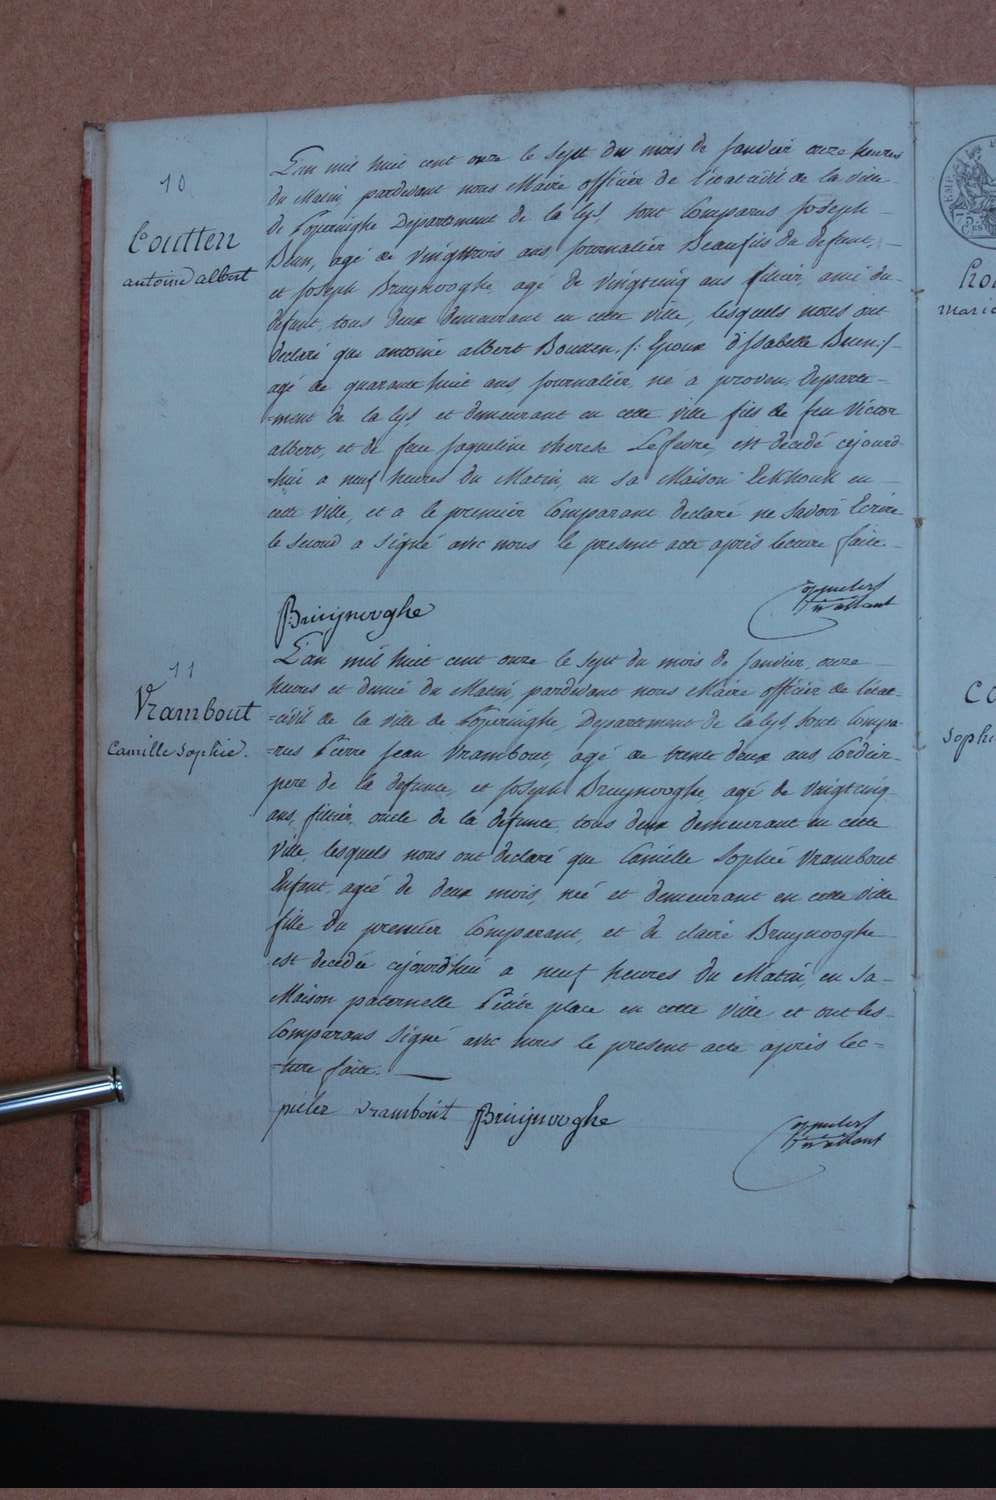 10
Coutten
antoine albert
L'an mil huit cent onze le sept du mois de Janvier onze heures
du Matin, pardevant nous Maire officier de l'état civil de la ville
de Poperinghe Departement de la lys, sont Comparus Joseph
Deun, agé de vingttrois ans, journaliér Beaufils du defunt,
et Joseph Bruynooghe, agé de vingtcinq ans filier, ami du
defunt, tous deux demeurant en cette ville, lesquels nous ont
declaré que antoine albert Boutten, /: Epoux d'Isabelle Deun :/
agé de quarante huit ans, journaliér, né a proven, departe-
-ment de la lys, et demeurant en cette ville fils de feu Victor
albert, et de feue Jaqueline therese Lefevre, est decedé cejourd-
-hui a neuf heures du Matin, en sa Maison Eekhoek en
cette ville, et a le premier Comparant declaré ne savoir Ecrire
le second a signé avec nous le present acte aprés lecture faite
Bruijnooghe
11
Vrambout
Camille Sophie.
L'an mil huit cent onze le sept du mois de Janvier, onze
heures et demie du Matin, pardevant nous Maire officier de l'état-
=civil de la ville de Poperinghe, Departement de la lys, sont Compa-
=rus Pierre Jean Vrambout, agé de trente deux ans, Cordier
pere de la defunte, et Joseph Bruynooghe, agé de vingtcinq
ans, filier, oncle de la defunte, tous deux demeurant en cette
ville, lesquels nous ont declaré que Camille Sophie Vrambout
Enfant, agée de deux mois, née et demeurant en cette ville
fille du premier Comparant, et de Claire Bruynooghe
est decedée cejourd'hui a neuf heures du Matin, en sa
Maison paternelle Petite place en cette ville et ont les
Comparans signé avec nous le present acte aprés lec=
=ture faite.
pieter vrambout Bruijnooghe